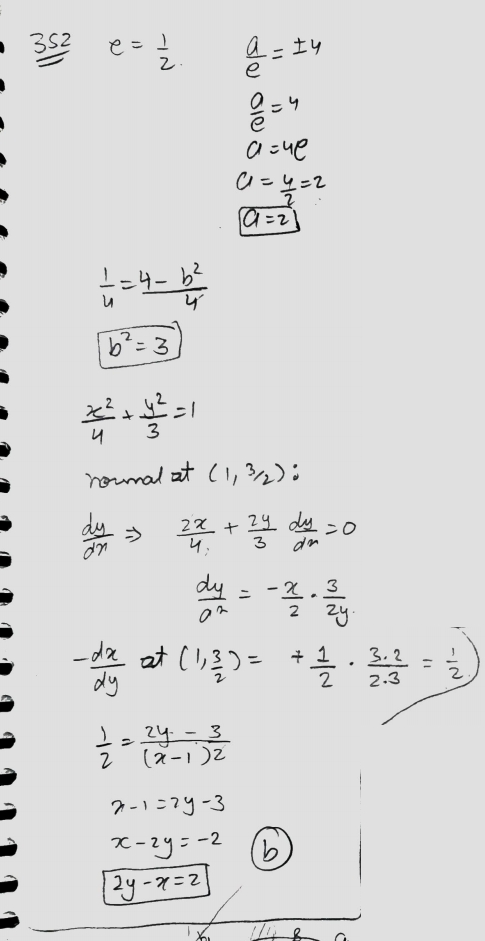 352 e = 1/2 a/e = ±4
a/e = 4
a = 4e
a = 4/2 = 2
a = 2
1/4 = (4 - b²)/4
b² = 3
x²/4 + y²/3 = 1
normal at (1, 3/2):
dy/dx ⇒ 2x/4 + 2y/3 dy/dx = 0
dy/dx = -x/2 · 3/2y
-dx/dy at (1, 3/2) = +1/2 · 3·2/2·3 = 1/2
1/2 = (2y - 3)/((x-1)2)
x - 1 = 2y - 3
x - 2y = -2
2y - x = 2 b